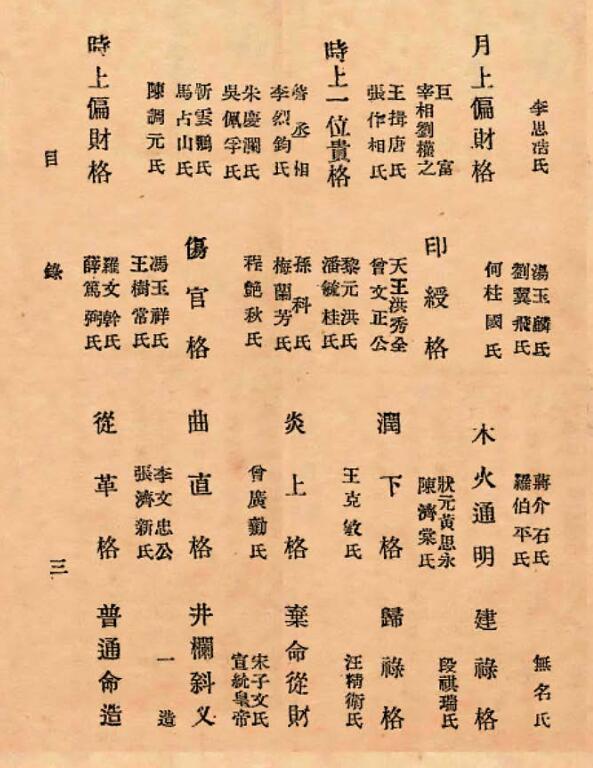 李思浩氏
月上偏財格
巨富
宰相劉權之
王揖唐氏
張作相氏
時上一位貴格
丞相
李烈鈞氏
朱慶瀾氏
吳佩孚氏
靳雲鵬氏
馬占山氏
陳調元氏
時上偏財格
湯玉麟氏
劉翼飛氏
何柱國氏
印綬格
天王洪秀全
曾文正公
黎元洪氏
潘毓桂氏
孫科氏
梅蘭芳氏
程艷秋氏
傷官格
馮玉祥氏
王樹常氏
羅文幹氏
薛篤弼氏
蔣介石氏
羅伯平氏
木火通明
狀元黃思永
陳濟棠氏
潤下格
王克敏氏
炎上格
曾廣勷氏
曲直格
李文忠公
張濟新氏
從革格
無名氏
建祿格
段祺瑞氏
歸祿格
汪精衛氏
棄命從財
宋子文氏
宣統皇帝
井欄斜义
一造
普通命造
目錄
三